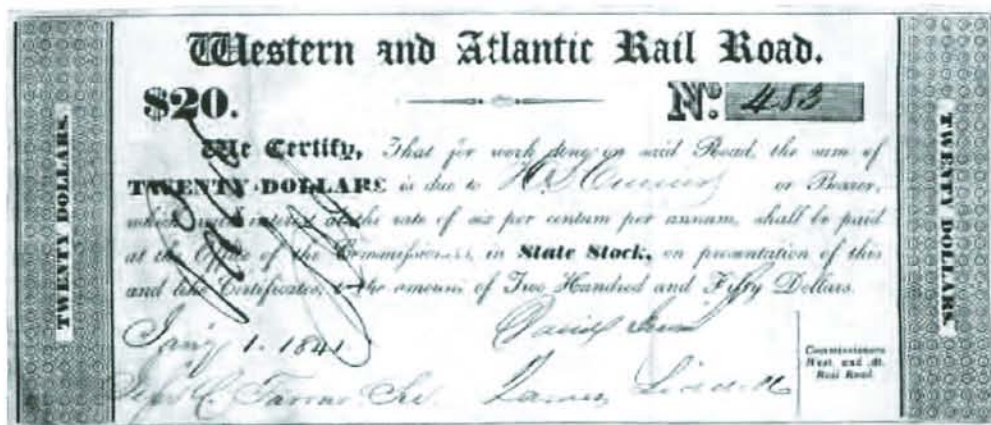 Western and Atlantic Rail Road.
$20. No. 483
We Certify, That for work done on said Road, the sum of
TWENTY DOLLARS is due to H. S. or Bearer,
which with interest at the rate of six per centum per annum, shall be paid
at the Office of the Commissioners, in State Stock, on presentation of this
and like Certificates, to the amount of Two Hundred and Fifty Dollars.
Jany 1. 1841
Daniel
James
Commissioners
West. and At.
Rail Road.
TWENTY DOLLARS.
TWENTY DOLLARS